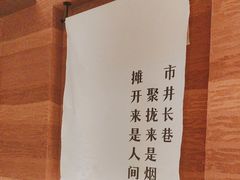 市井长巷
聚拢来是烟
摊开来是人间